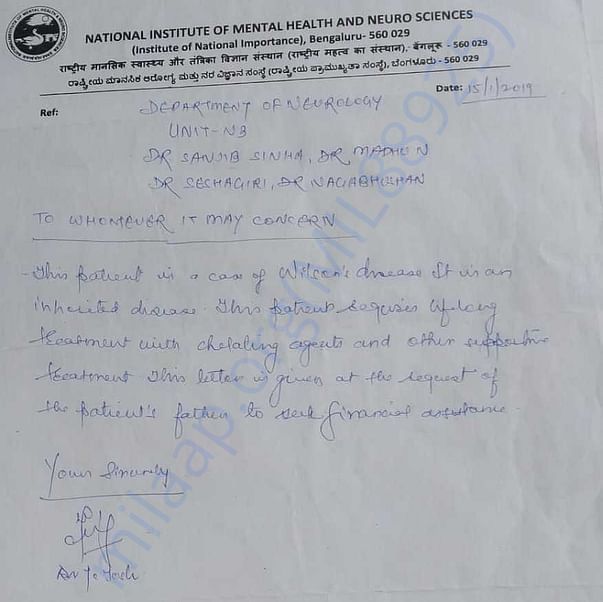 NATIONAL INSTITUTE OF MENTAL HEALTH AND NEURO SCIENCES
(Institute of National Importance), Bengaluru- 560 029
राष्ट्रीय मानसिक स्वास्थ्य और तंत्रिका विज्ञान संस्थान (राष्ट्रीय महत्व का संस्थान),- बेंगलूरू - 560 029
ರಾಷ್ಟ್ರೀಯ ಮಾನಸಿಕ ಆರೋಗ್ಯ ಮತ್ತು ನರ ವಿಜ್ಞಾನ ಸಂಸ್ಥೆ (ರಾಷ್ಟ್ರೀಯ ಪ್ರಾಮುಖ್ಯತಾ ಸಂಸ್ಥೆ), ಬೆಂಗಳೂರು - 560 029
Ref:
Date: 15/1/2019
DEPARTMENT OF NEUROLOGY
UNIT-N3
DR SANJIB SINHA, DR MADHU N
DR SESHAGIRI, DR NAGABHUSHAN
TO WHOMEVER IT MAY CONCERN
This patient is a case of Wilson's disease It is an
inherited disease. This patient requires lifelong
treatment with chelating agents and other supportive
treatment This letter is given at the request of
the patient's father to seek financial assistance.
Yours Sincerely
milaap.org(MIL88925)